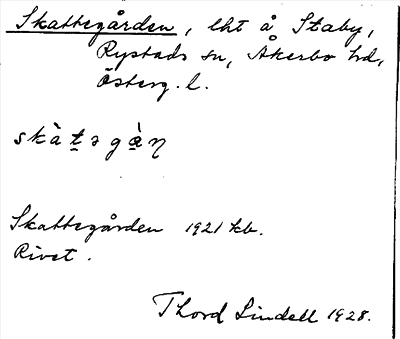 Skattegården, lht å Staby,
Rystads sn, Åkerbo hd,
Österg. l.
skàt̲əgà̲ɳ
Skattegården 1921 kb.
Rivet.
Thord Lindell 1928.